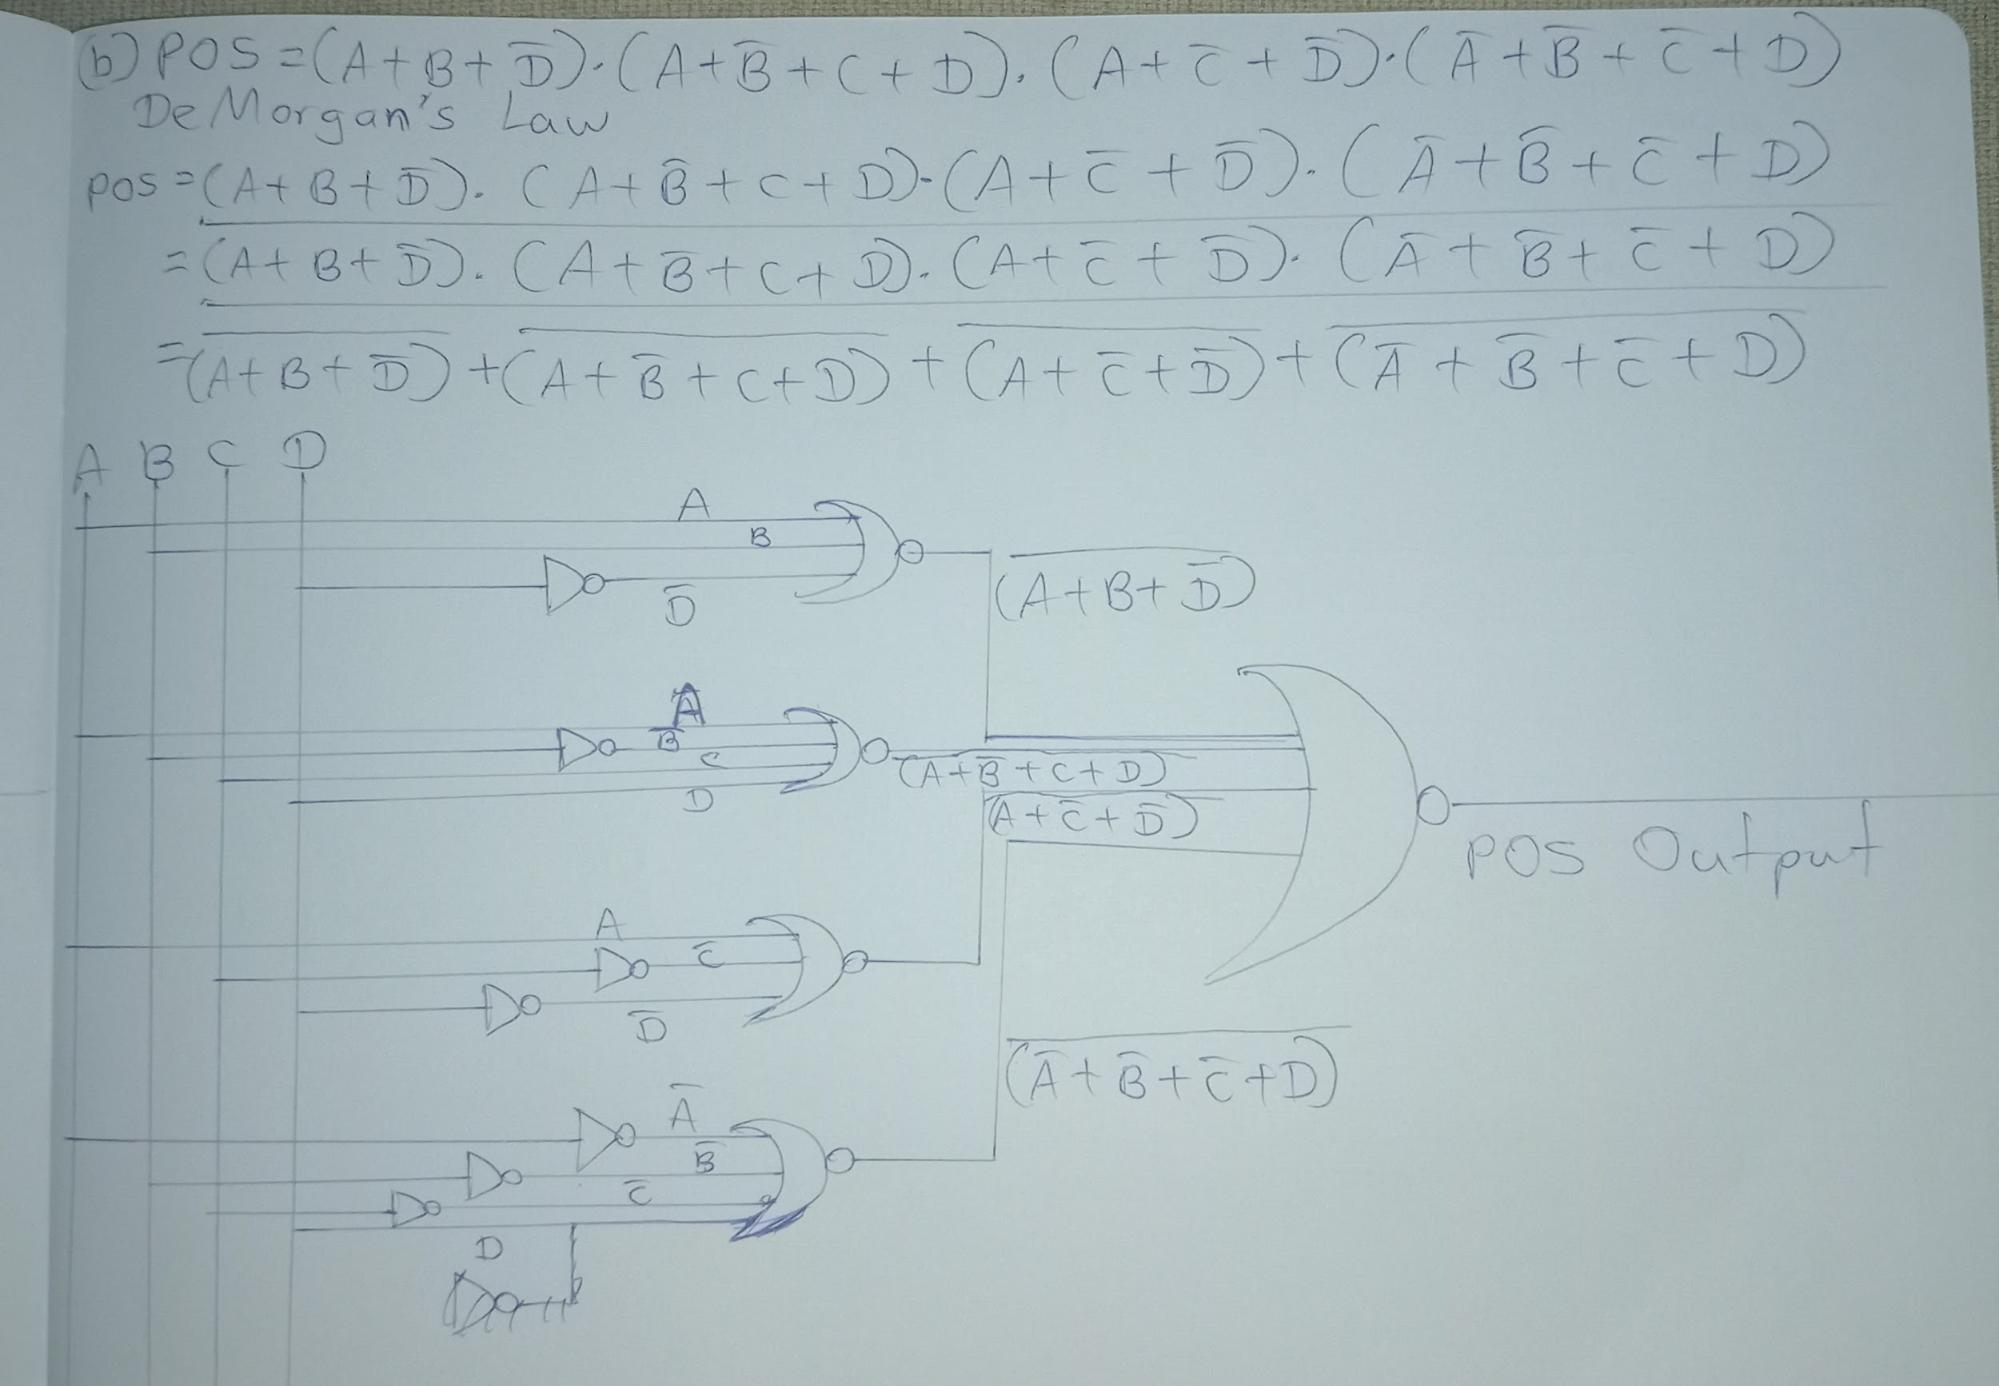 (b) POS = (A+B+D̅).(A+B̅+C+D).(A+C̅+D̅).(A̅+B̅+C̅+D)
DeMorgan's Law
POS = (A+B+D̅).(A+B̅+C+D).(A+C̅+D̅).(A̅+B̅+C̅+D)
= (A+B+D̅).(A+B̅+C+D).(A+C̅+D̅).(A̅+B̅+C̅+D)
= (A+B+D̅)+(A+B̅+C+D)+(A+C̅+D̅)+(A̅+B̅+C̅+D)
A B C D
A
B
D̅
(A+B+D̅)
A
B̅
C
D
(A+B̅+C+D)
(A+C̅+D̅)
POS Output
A
C̅
D̅
A̅
B̅
C̅
D
(A̅+B̅+C̅+D)